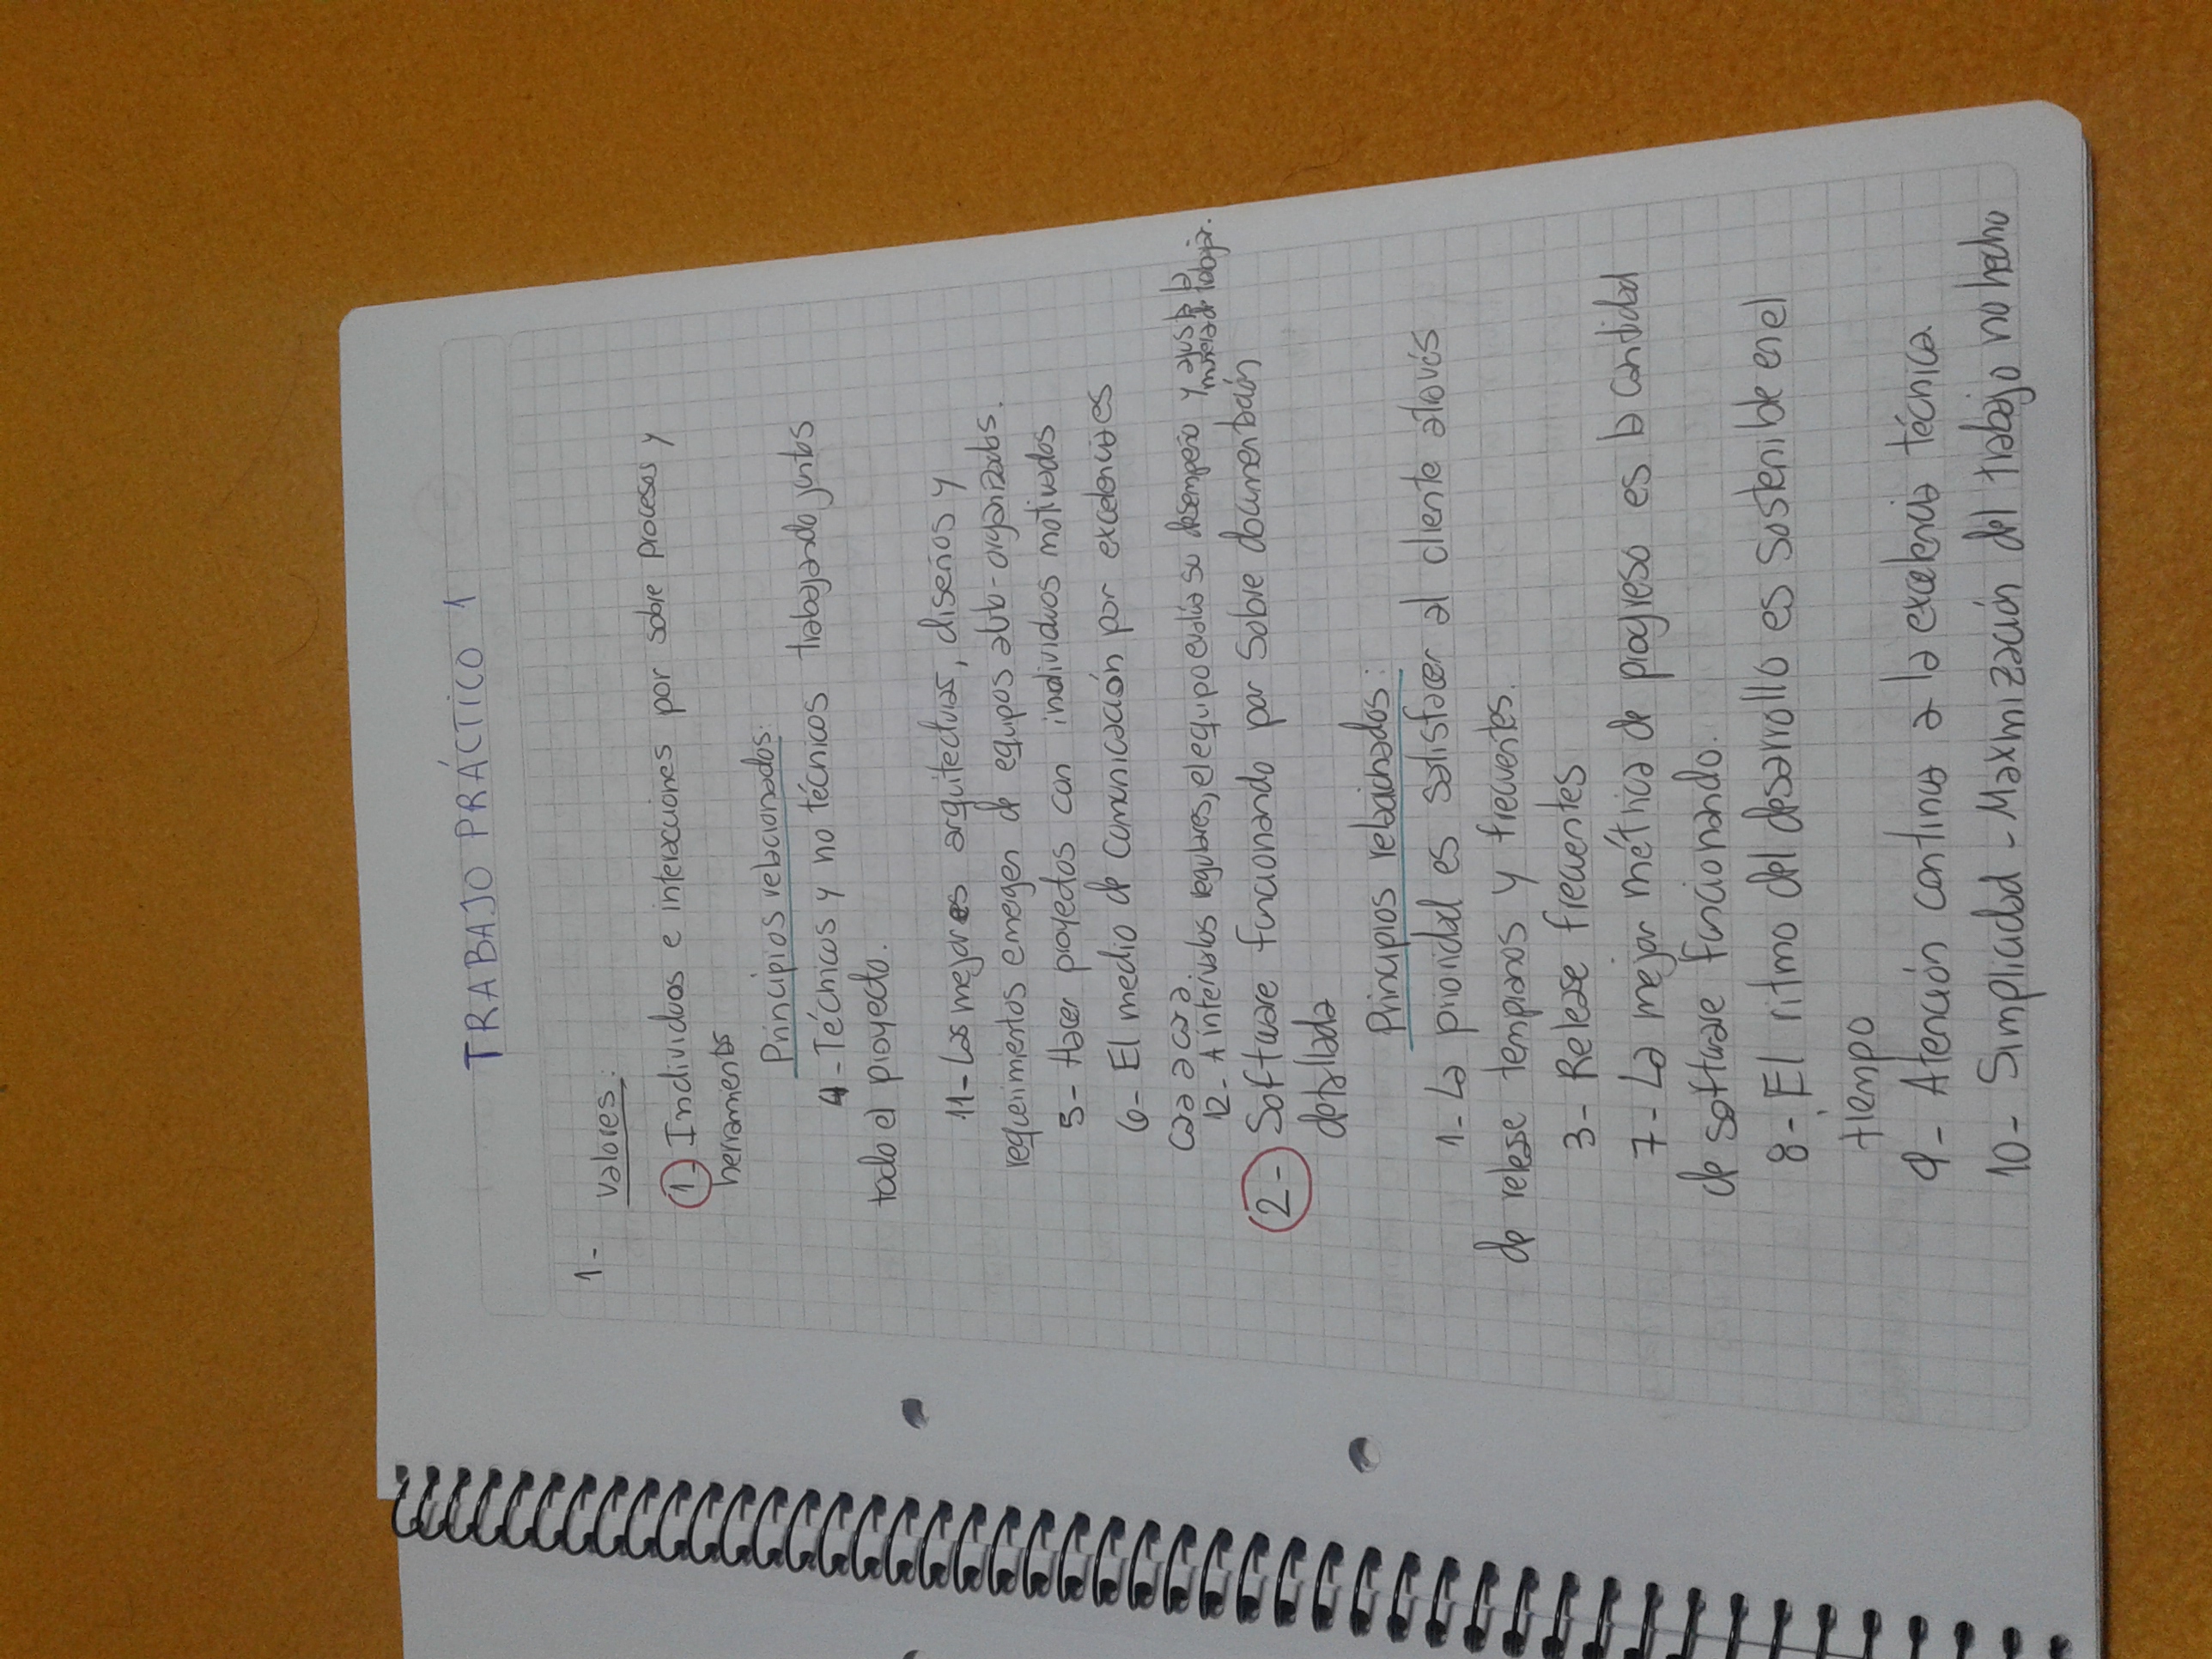 TRABAJO PRÁCTICO 1
1- Valores:
1- Individuos e interacciones por sobre procesos y
herramientas
Principios relacionados:
4- Técnicos y no técnicos trabajando juntos
todo el proyecto.
11- Las mejores arquitecturas, diseños y
requerimientos emegen de equipos auto-organizados.
5- Hacer proyectos con individuos motivados
6- El medio de comunicación por excelencia es
cara a cara.
12- A intervalos regulares, el equipo evalúa su desempeño y ajusta la
manera de trabajar.
2- Software funcionando por sobre documentación
detallada
Principios relacionados:
1- La prioridad es satisfacer al cliente através
de release tempranos y frecuentes.
3- Release frecuentes
7- La mejor métrica de progreso es la cantidad
de software funcionando.
8- El ritmo del desarrollo es sostenible en el
tiempo
9- Atención continua a la excelencia técnica
10- Simplicidad - Maxmización del trabajo no hecho